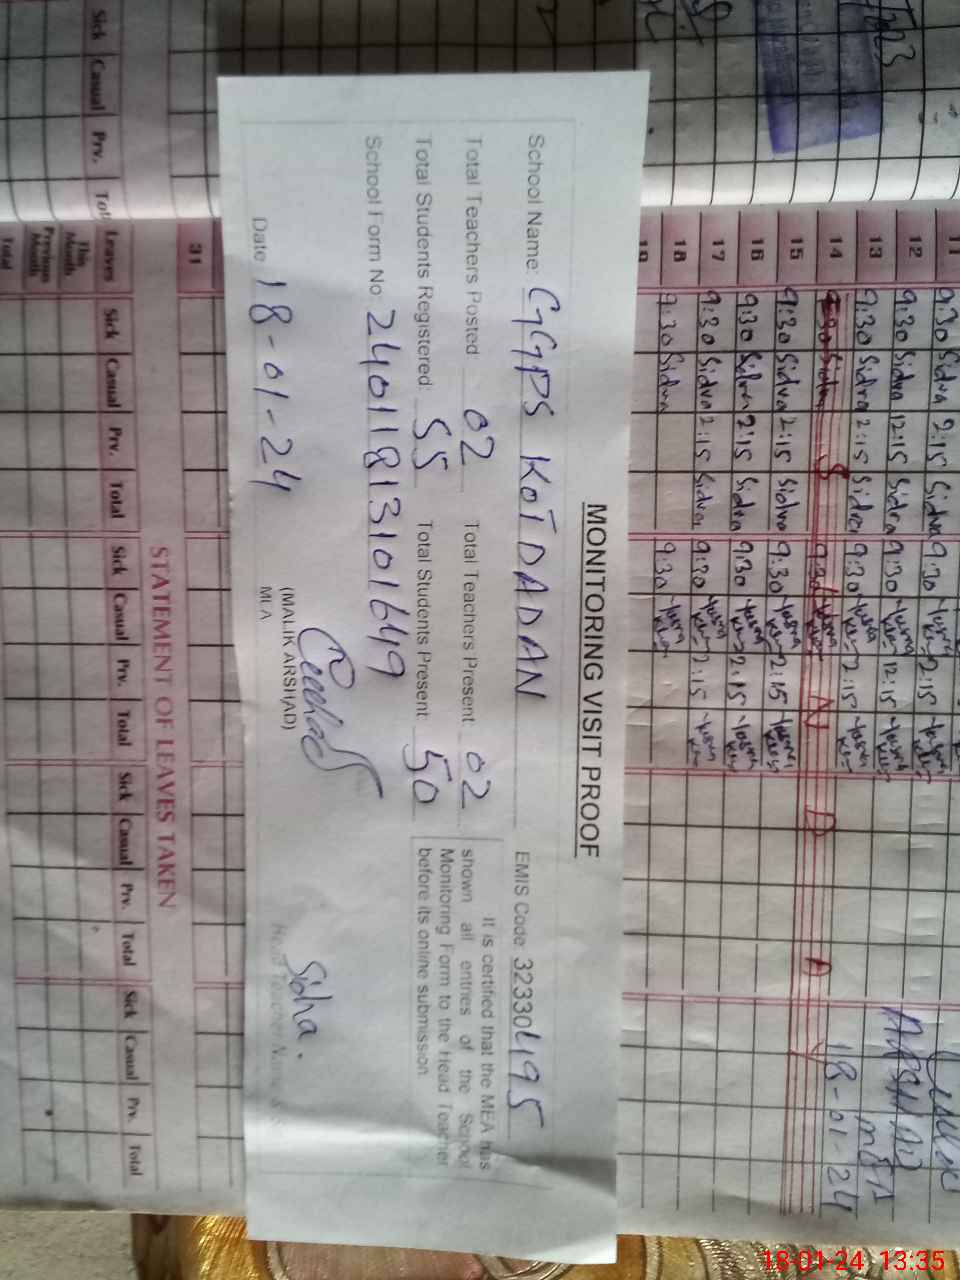 MONITORING VISIT PROOF
School Name: GGPS KOT DADAN EMIS Code: 32330495
Total Teachers Posted 02 Total Teachers Present 02
Total Students Registered: 55 Total Students Present 50
School Form No 24011813101649
It is certified that the MEA has
shown all entries of the School
Monitoring Form to the Head Teacher
before its online submission
Date 18-01-24
(MALIK ARSHAD)
MEA
Sidra.
11 9:30 Sidra 2:15 Sidra 9:30 2:15
12 9:30 Sidra 12:15 Sidra 9:30 12:15
13 9:30 Sidra 2:15 Sidra 9:30 2:15
14 S U N D A Y
15 9:30 Sidra 2:15 Sidra 9:30 2:15
16 9:30 Sidra 2:15 Sidra 9:30 2:15
17 9:30 Sidra 2:15 Sidra 9:30 2:15
18 9:30 Sidra 9:30
19
ARSHAD
MEA
18-01-24
31
STATEMENT OF LEAVES TAKEN
Leaves Sick Casual Prv. Total Sick Casual Prv. Total Sick Casual Prv. Total Sick Casual Prv. Total
This Month
Previous Month
Total
Sick Casual Prv.
18-01-24 13:35